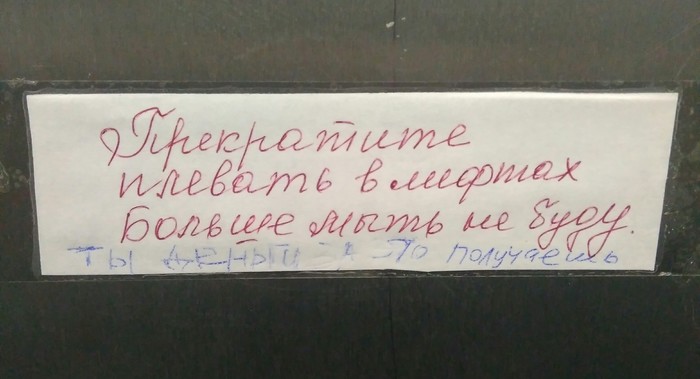 Прекратите
плевать в лифтах
Больше мыть не буду.
ты деньги за это получаешь